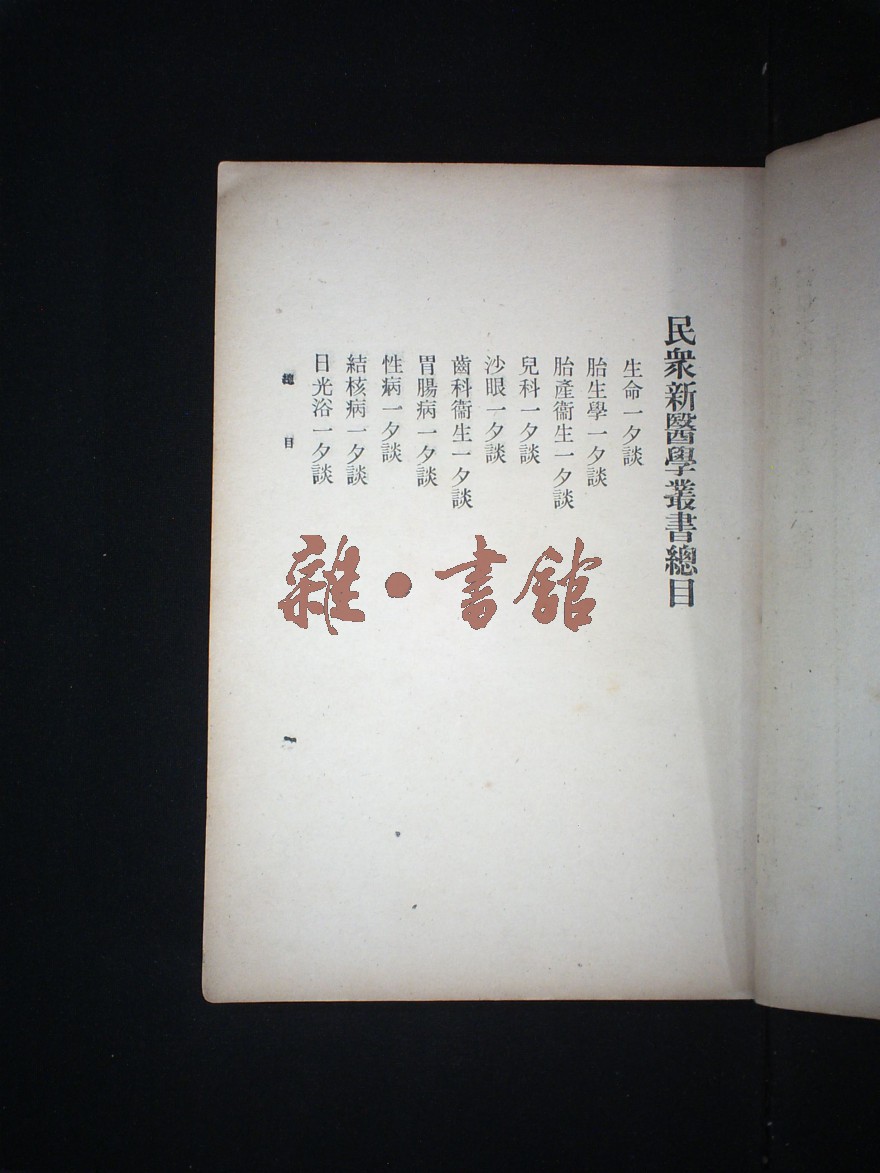 民衆新醫學叢書總目
生命一夕談
胎生學一夕談
胎產衞生一夕談
兒科一夕談
沙眼一夕談
齒科衞生一夕談
胃腸病一夕談
性病一夕談
結核病一夕談
日光浴一夕談
總目
一
雜·書館